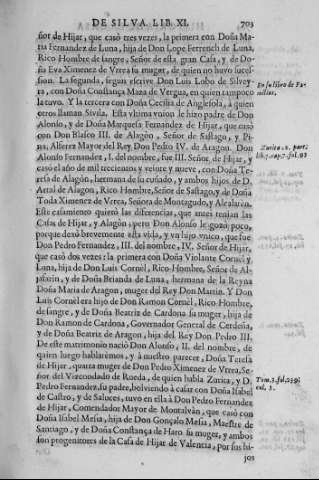 DE SILVA. LIB. XI. 703
ñor de Hijar, que casò tres vezes, la primera con Doña Ma
ria Fernandez de Luna, hija de Don Lope Ferrench de Luna,
Rico Hombre de sangre, Señor de esta gran Casa, y de Do
ña Eva Ximenez de Vrrea su muger, de quien no huvo sucef-
sion. La segunda, segun escrive Don Luis Lobo de Silvey
ra, con Doña Constança Maza de Vergua, en quien tampoco
la tuvo. Y la tercera con Doña Cecilia de Anglesola, à quien
otros llaman Sivila. Esta vltima vnion le hizo padre de Don
Alonso, y de Doña Marquesa Fernandez de Hijar, que casò
con Don Blasco III. de Alagòn, Señor de Sastago, y Pi-
na, Alferez Mayor del Rey Don Pedro IV. de Aragon. Don
Alonso Fernandez, I. del nombre, fue III. Señor de Hijar, y
casò el año de mil trecientos y veinte y nueve, con Doña Te-
resa de Alagòn, hermana de su cuñado, y ambos hijos de D.
Artal de Alagon, Rico Hombre, Señor de Sastago, y de Doña
Toda Ximenez de Vrrea, Señora de Montagudo, y Alcalatèn.
Este casamiento quietò las diferencias, que antes tenian las
Casas de Hijar, y Alagòn; pero Don Alonso le gozò poco,
porque dexò brevemente esta vida, y vn hijo vnico, que fue
Don Pedro Fernandez, III. del nombre, IV. Señor de Hijar,
que casò dos vezes: la primera con Doña Violante Cornèl y
Luna, hija de Don Luis Cornèl, Rico-Hombre, Señor de Al-
jafarin, y de Doña Brianda de Luna, hermana de la Reyna
Doña Maria de Aragon, muger del Rey Don Martin. Y Don
Luis Cornèl era hijo de Don Ramon Cornèl, Rico-Hombre,
de sangre, y de Doña Beatriz de Cardona su muger, hija de
Don Ramon de Cardona, Governador General de Cerdeña,
y de Doña Beatriz de Aragon, hija del Rey Don Pedro III.
De este matrimonio nació Don Alonso, II. del nombre, de
quien luego hablarèmos, y à nuestro parecer, Doña Teresa
de Hijar, quarta muger de Don Pedro Ximenez de Vrrea, Se-
ñor del Vizcondado de Rueda, de quien habla Zurita, y D.
Pedro Fernandez, su padre, bolviendo à casar con Doña Isabel
de Castro, y de Saluces, tuvo en ella à Don Pedro Fernandez
de Hijar, Comendador Mayor de Montalvàn, que casò con
Doña Isabel Mesia, hija de Don Gonçalo Mesia, Maestre de
Santiago, y de Doña Constança de Haro su muger, y ambos
son progenitores de la Casa de Hijar de Valencia, por sus hi-
jos
En su libro de Fa-
milias.
Zurita 2. part.
lib. 7. cap. 7. fol. 93
Tom. 3. fol. 259.
col. 2.